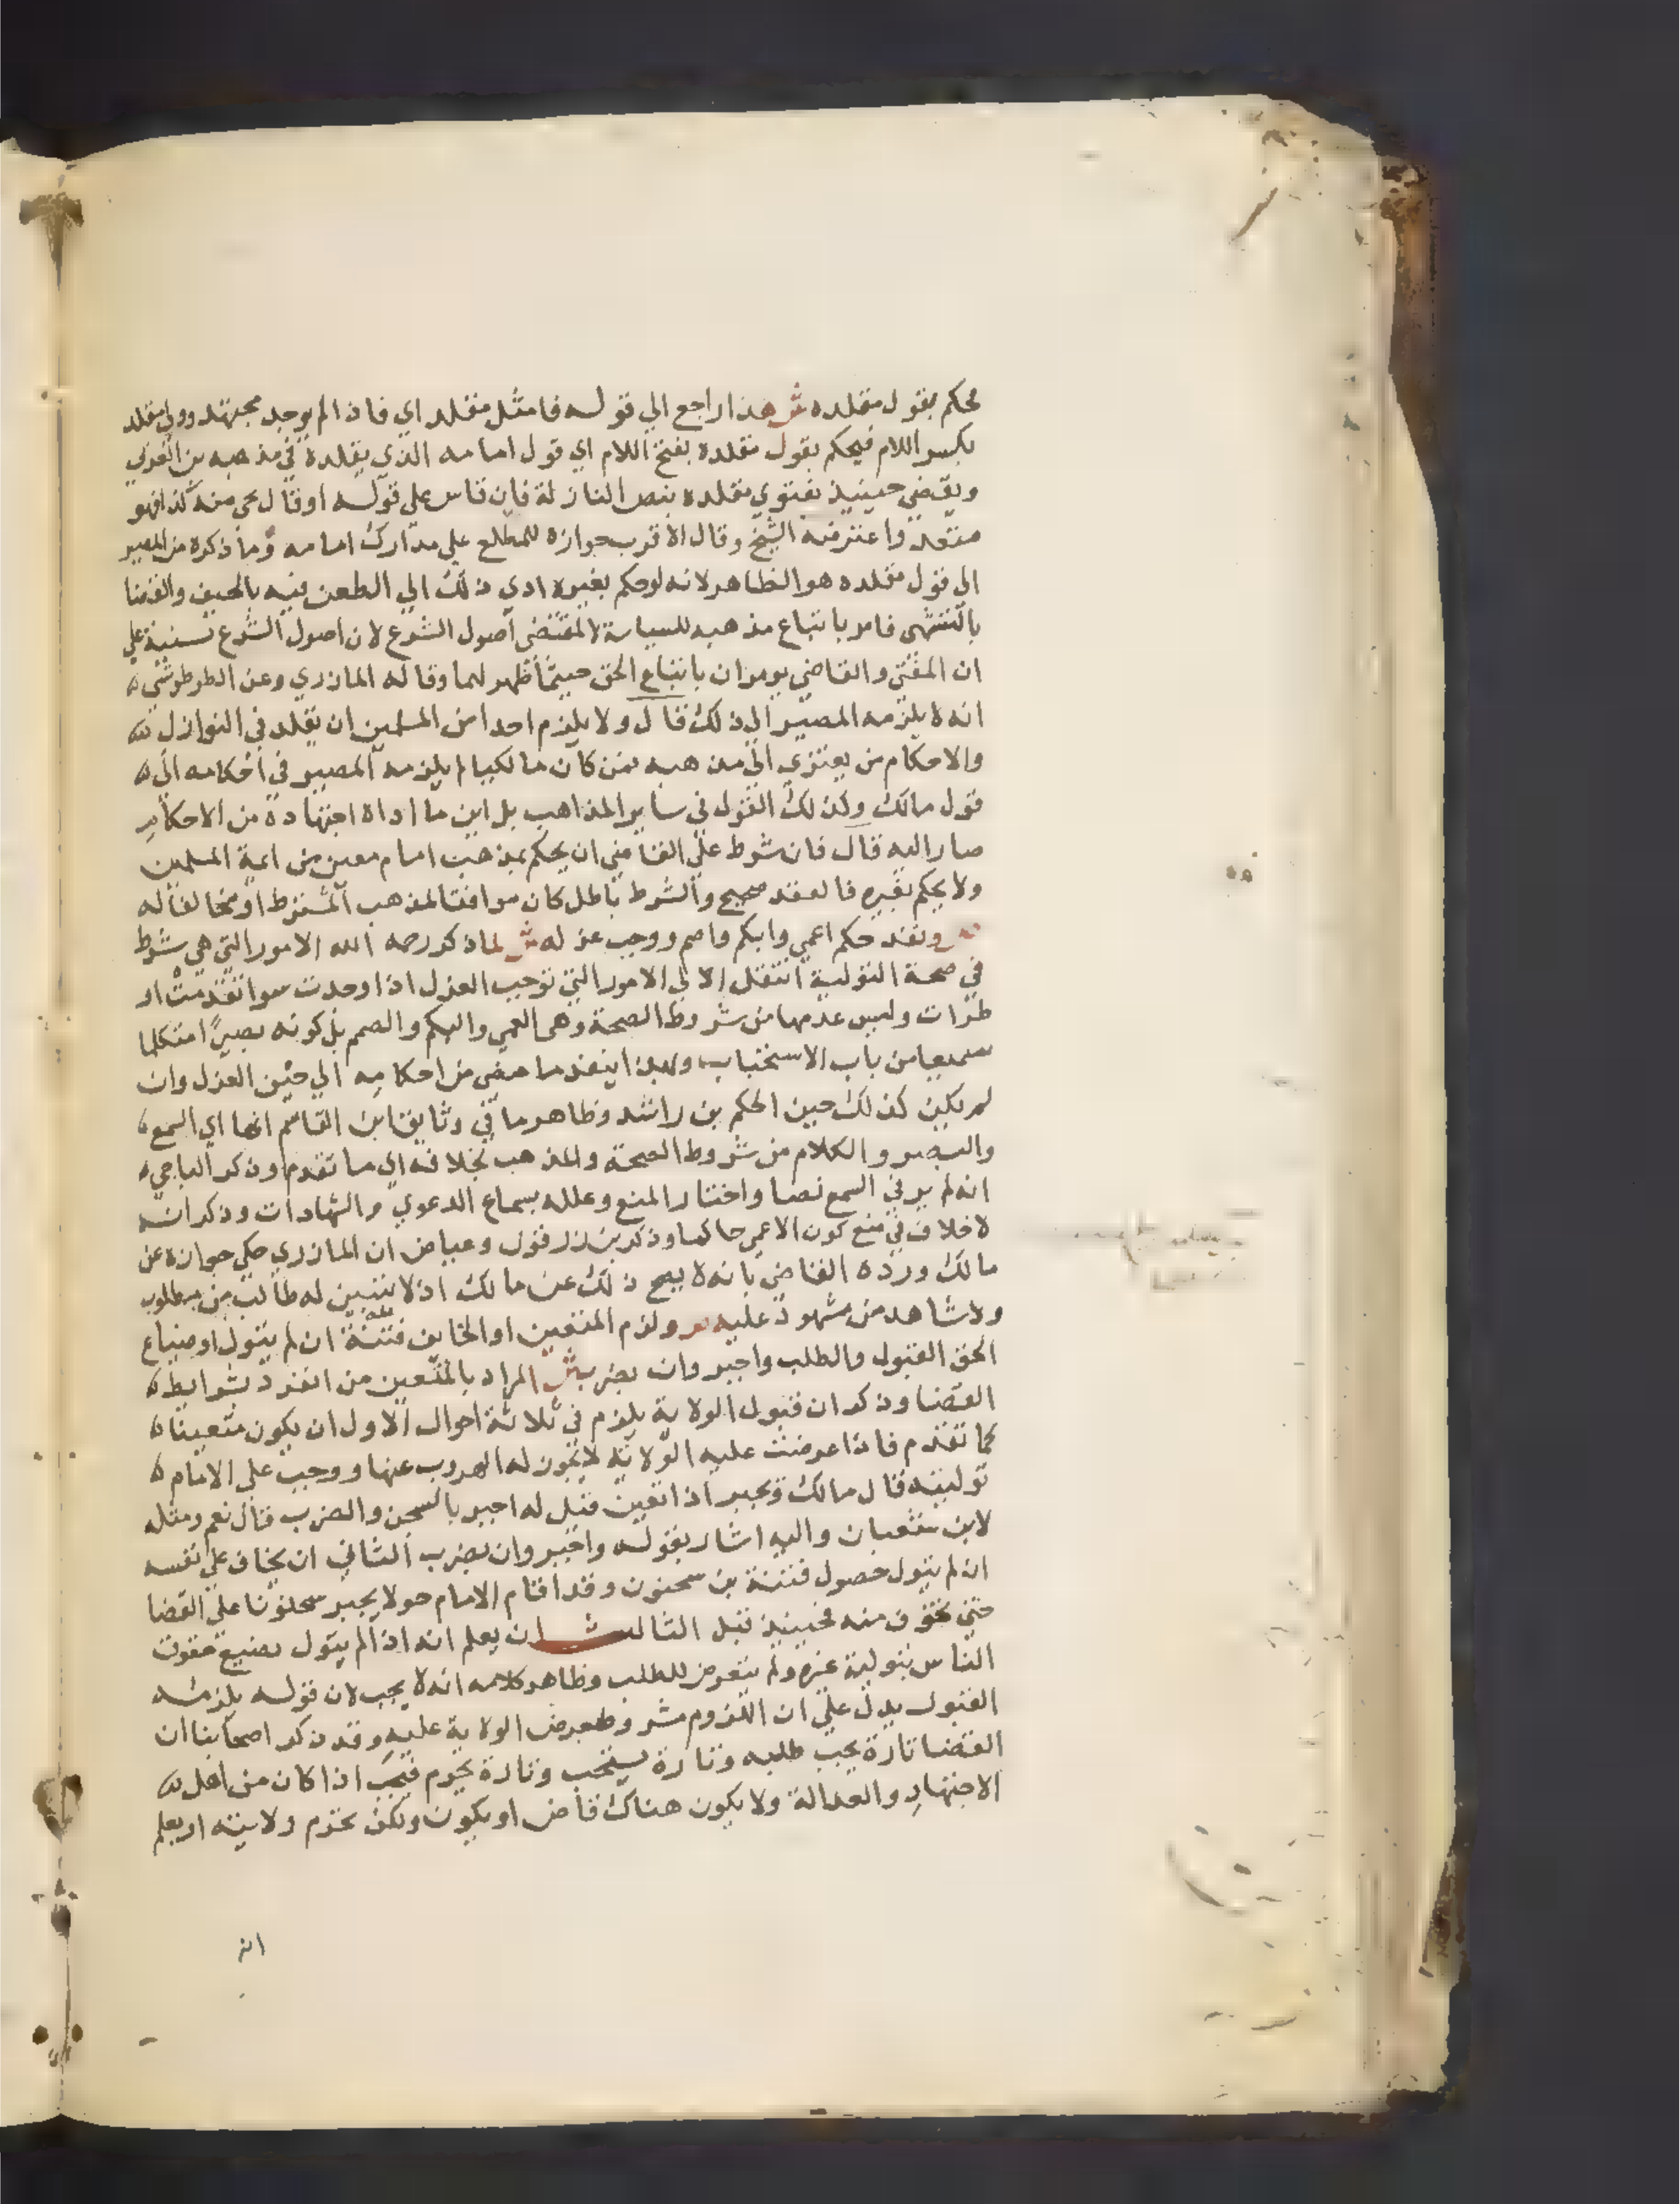 فحكم بقول مقلده ش هذا راجع الي قوله فامثل مقلد اي فاذا لم يوجد مجتهد وولي مقلد
بكسر اللام فيحكم بقول مقلده بفتح اللام اي قول امامه الذي يقلده في مذهبه بن العربي
ويقضي حينيذ بفتوي مقلده بنص النازلة فان قاس علي قوله اوقال يجي منه كذا فهو
متعد واعترضه الشيخ وقال الاقرب جوازه للمطلع علي مدارك امامه وما ذكره من المصير
الي قول مقلده هو الظاهر لانه لوحكم بغيره ادي ذلك الي الطعن فيه بالحيف والقضا
بالتشهي فامر باتباع مذهبه للسياسة لا لمقتضي اصول الشرع لان اصول الشرع مبنية علي
ان المفتي والقاضي يومران باتباع الحق حيثما ظهر لهما وقاله المازري وعن الطرطوشي
انه لا يلزمه المصير الي ذلك قال ولا يلزم احدا من المسلمين ان يقلد في النوازل
والاحكام من يعتزي الي مذهبه فمن كان مالكيا لم يلزمه المصير في احكامه الي
قول مالك وكذلك القول في ساير المذاهب بل اين ما اداه اجتهاده من الاحكام
صار اليه قال فان شرط علي القاضي ان يحكم بمذهب امام معين من ايمة المسلمين
ولا يحكم بغيره فالعقد صحيح والشرط باطل كان موافقا لمذهب المشترط او مخالفا له
ص ونفذ حكم اعمي وابكم واصم ووجب عزله ش لما ذكر رحمه الله الامور التي هي شرط
في صحة التولية انتقل الا ان الي الامور التي توجب العزل اذا وجدت سوا تقدمت او
طرات وليس عدمها من شروط الصحة وهي العمي والبكم والصمم بل كونه بصيرا متكلما
سميعا من باب الاستحباب ولهذا ينفذ ما مضي من احكامه الي حين العزل وان
لم يكن كذلك حين الحكم بن راشد وظاهر ما في وثايق ابن القاسم انها اي السمع
والبصر والكلام من شروط الصحة والمذهب بخلافه اي ما تقدم وذكر الباجي
انه لم ير في السمع نصا واختار المنع وعلله بسماع الدعوي والشهادات وذكر انه
لا خلاف في منع كون الاعمي حاكما وذكر بن زرقون وعياض ان المازري حكي جوازه عن
مالك ورده القاضي بانه لا يصح ذلك عن مالك اذ لا يتبين له طالب من مطلوب
ولا شاهد من مشهود عليه ص ولزم المتعين او الخايف فتنة ان لم يتول او ضياع
الحق القبول والطلب واجبر وان بضرب ش المراد بالمتعين من انفرد بشرايط
القضا وذكر ان قبول الولاية يلزم في ثلاثة احوال الاول ان يكون متعينا
كما تقدم فاذا عرضت عليه الولاية لا يجوز له الهروب عنها ووجب علي الامام
توليته قال مالك ويجبر اذا تعين قيل له اجبر بالسجن والضرب قال نعم ومثله
لابن شعبان واليه اشار بقوله واجبر وان بضرب الثاني ان يخاف علي نفسه
ان لم يتول حصول فتنة بن سحنون وقد اقام الامام حولا يجبر سحنونا علي القضا
حتي تخوف منه فحينيذ قبل الثالث ان يعلم انه اذا لم يتول تضيع حقوق
الناس بتولية غيره ولم يتعرض للطلب وظاهر كلامه انه لا يجب لان قوله يلزمه
القبول يدل علي ان اللزوم مشروط بعرض الولاية عليه وقد ذكر اصحابنا ان
القضا تارة يجب طلبه وتارة يستحب وتارة يحرم فيجب اذا كان من اهل
الاجتهاد والعدالة ولا يكون هناك قاض او يكون ولكن تحرم ولايته او يعلم
انه